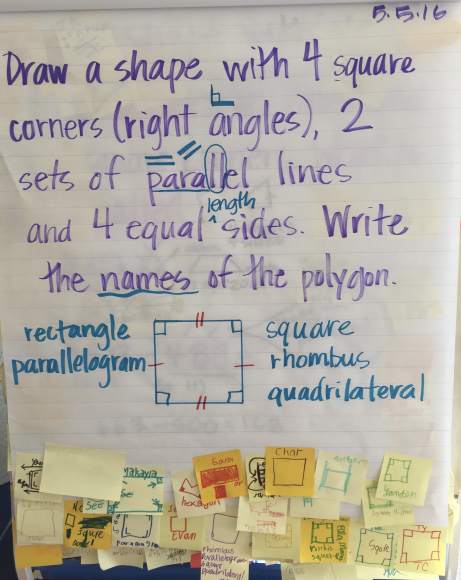 5.5.16
Draw a shape with 4 square
corners (right angles), 2
sets of parallel lines
length
and 4 equal ^ sides. Write
the names of the polygon.
rectangle
parallelogram
square
rhombus
quadrilateral
Char
Makayla
hexagon
See
Evan
Brandon
rhombus
parallelogram
square
quadrilateral
TC